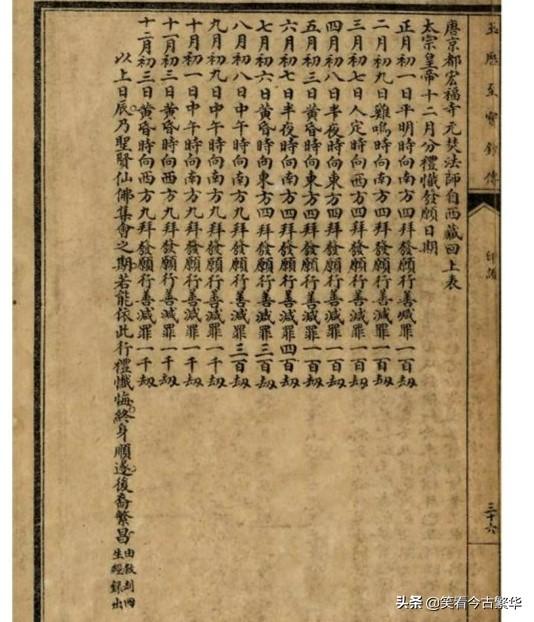 玉歷至寶鈔傳
印譜
三十六
唐京都宏福寺元奘法師自西藏回上表
太宗皇帝十二月分禮懺發願日期
正月初一日平明時向南方四拜發願行善滅罪一百劫
二月初九日雞鳴時向南方四拜發願行善滅罪一百劫
三月初七日人定時向西方四拜發願行善滅罪一百劫
四月初八日半夜時向東方四拜發願行善滅罪一百劫
五月初三日黃昏時向東方四拜發願行善滅罪一百劫
六月初七日半夜時向東方四拜發願行善滅罪四百劫
七月初六日黃昏時向東方四拜發願行善滅罪三百劫
八月初八日中午時向南方九拜發願行善滅罪三百劫
九月初九日中午時向南方九拜發願行善滅罪一千劫
十月初一日中午時向南方九拜發願行善滅罪一千劫
十一月初三日黃昏時向西方九拜發願行善滅罪一千劫
十二月初三日黃昏時向西方九拜發願行善滅罪一千劫
以上日辰乃聖賢仙佛集會之期若能依此行禮懺悔終身順遂後裔繁昌由救劫回
生經錄出
头条 @笑看今古繁华